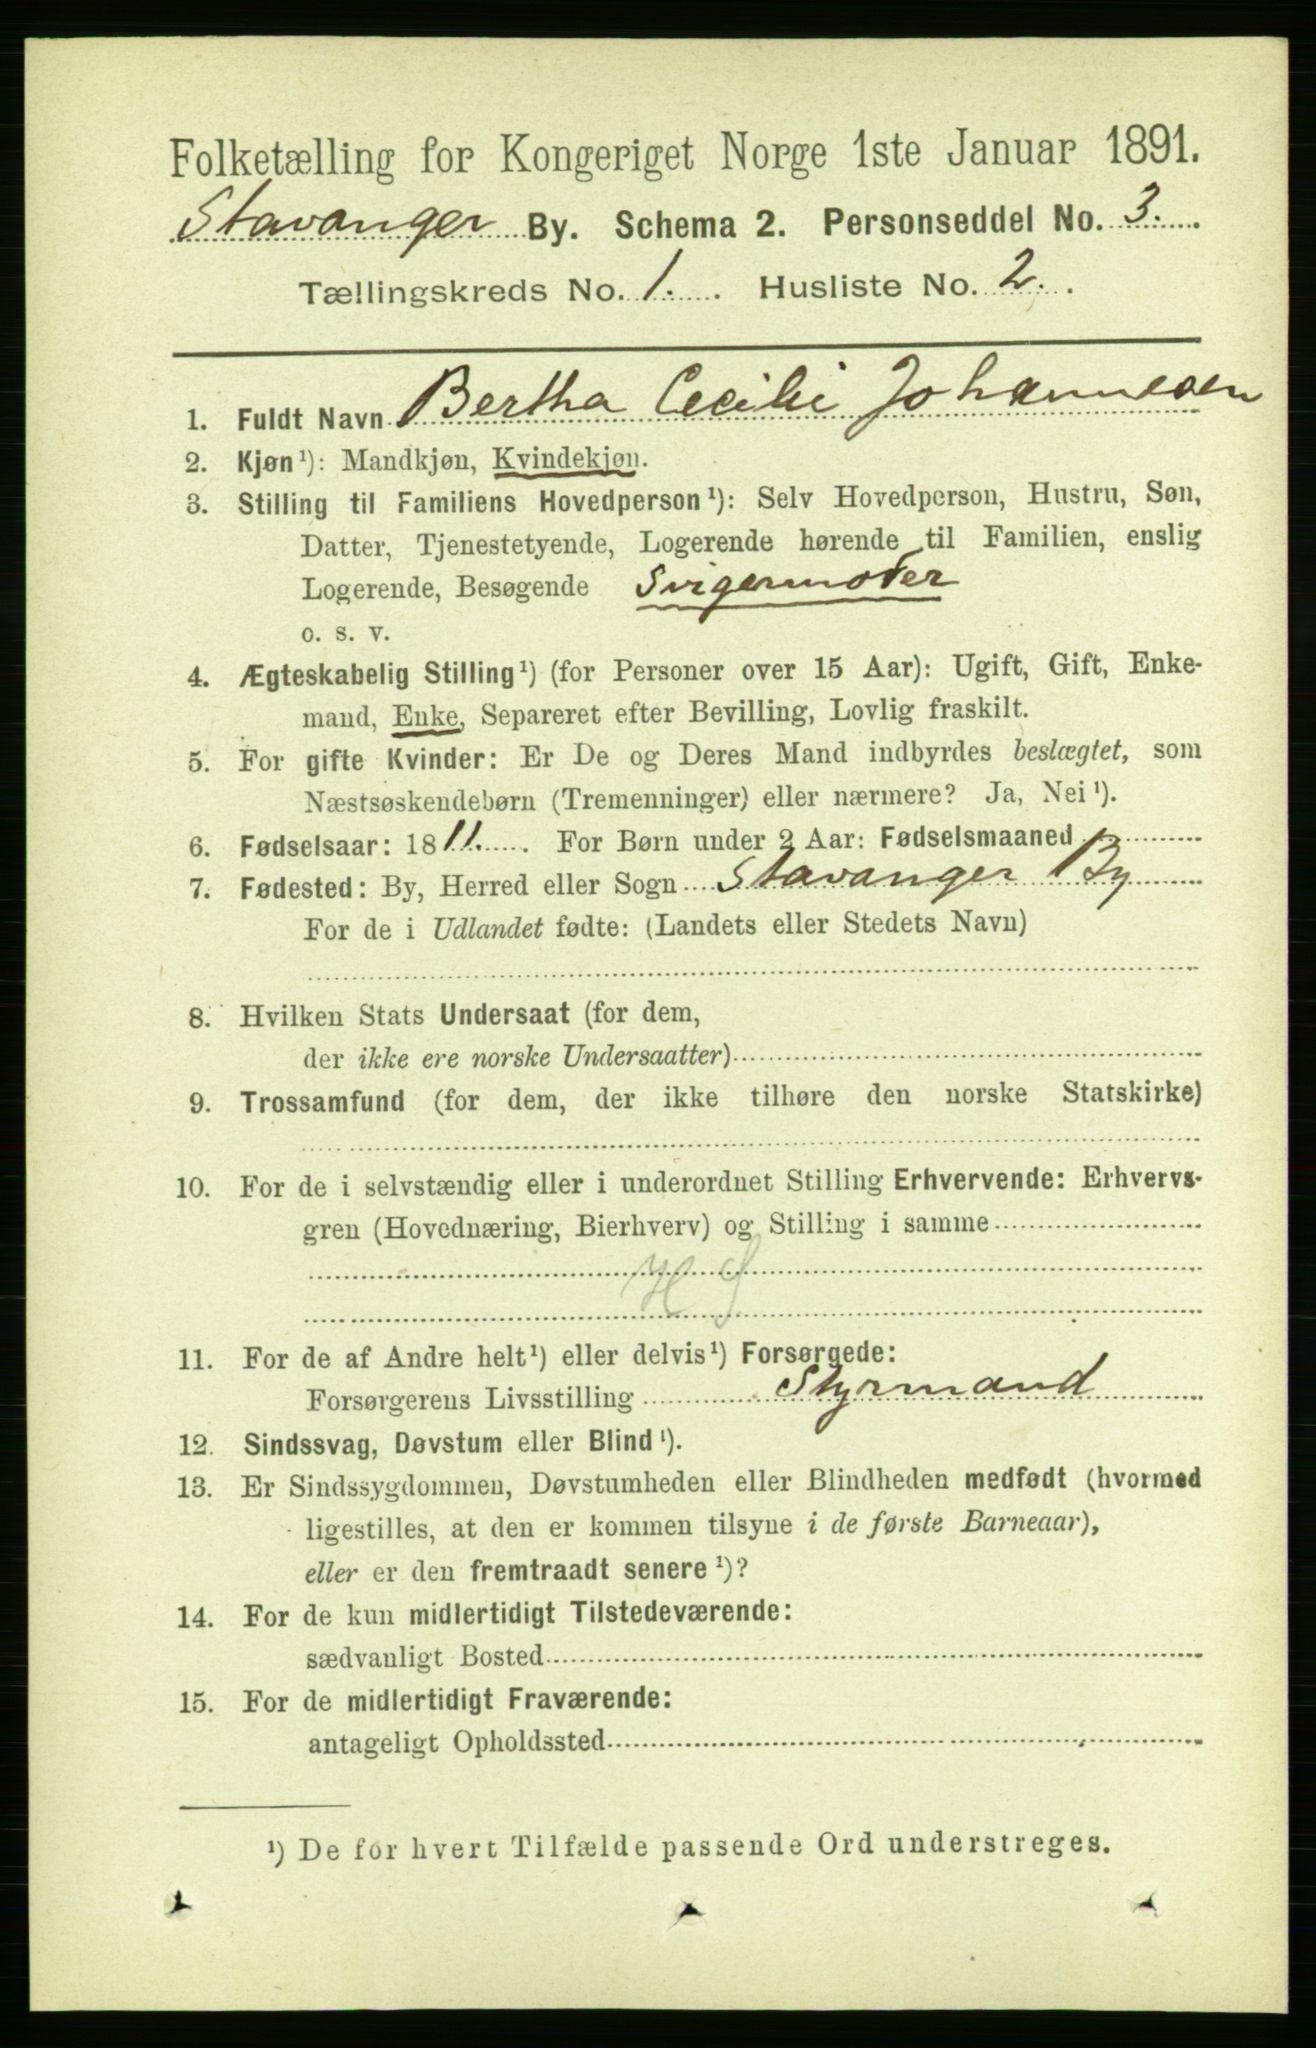 Folketælling for Kongeriget Norge 1ste Januar 1891.
Stavanger By. Schema 2. Personseddel No. 3.
Tællingskreds No. 1. Husliste No. 2.
1. Fuldt Navn Bertha Cecilie Johannesen
2. Kjøn¹): Mandkjøn, Kvindekjøn.
3. Stilling til Familiens Hovedperson¹): Selv Hovedperson, Hustru, Søn,
Datter, Tjenestetyende, Logerende hørende til Familien, enslig
Logerende, Besøgende Svigermoder
o. s. v.
4. Ægteskabelig Stilling¹) (for Personer over 15 Aar): Ugift, Gift, Enke-
mand, Enke, Separeret efter Bevilling, Lovlig fraskilt.
5. For gifte Kvinder: Er De og Deres Mand indbyrdes beslægtet, som
Næstsøskendebørn (Tremenninger) eller nærmere? Ja, Nei¹).
6. Fødselsaar: 1811. For Børn under 2 Aar: Fødselsmaaned
7. Fødested: By, Herred eller Sogn Stavanger By
For de i Udlandet fødte: (Landets eller Stedets Navn)
8. Hvilken Stats Undersaat (for dem,
der ikke ere norske Undersaatter)
9. Trossamfund (for dem, der ikke tilhøre den norske Statskirke)
10. For de i selvstændig eller i underordnet Stilling Erhvervende: Erhvervs-
gren (Hovednæring, Bierhverv) og Stilling i samme
11. For de af Andre helt¹) eller delvis¹) Forsørgede:
Forsørgerens Livsstilling Styrmand
12. Sindssvag, Døvstum eller Blind¹).
13. Er Sindssygdommen, Døvstumheden eller Blindheden medfødt (hvormed
ligestilles, at den er kommen tilsyne i de første Barneaar),
eller er den fremtraadt senere¹)?
14. For de kun midlertidigt Tilstedeværende:
sædvanligt Bosted
15. For de midlertidigt Fraværende:
antageligt Opholdssted
¹) De for hvert Tilfælde passende Ord understreges.